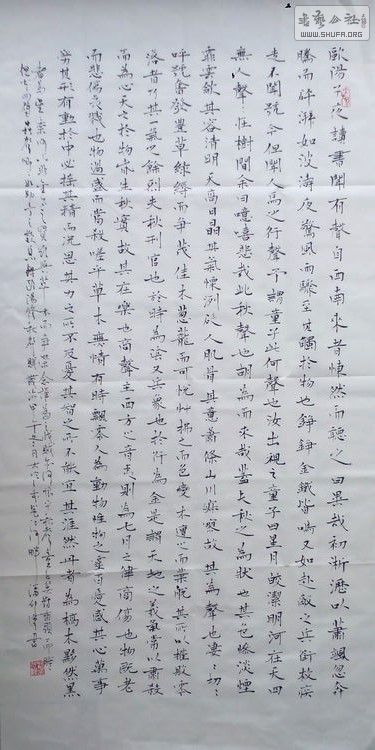 書法公社
WWW.SHUFA.ORG
歐陽子夜讀書聞有聲自西南來者悚然而聽之曰異哉初淅瀝以蕭颯忽奔
騰而砰湃如波濤夜驚風雨驟至其觸於物也錚錚金鐵皆鳴又如赴敵之兵銜枚疾
走不聞號令但聞人馬之行聲予謂童子此何聲也汝出視之童子曰星月皎潔明河在天四
無人聲在樹間余曰噫嘻悲哉此秋聲也胡為而來哉蓋夫秋之為狀也其色慘淡煙
霏雲斂其容清明天高日晶其氣慄冽砭人肌骨其意蕭條山川寂寥故其為聲也淒淒切切
呼號奮發豐草綠縟而爭茂佳木蔥蘢而可悅草拂之而色變木遭之而葉脫其所以摧敗零
落者乃其一氣之餘烈夫秋刑官也於時為陰又兵象也於行為金是謂天地之義氣常以肅殺
而為心天之於物春生秋實故其在樂也商聲主西方之音夷則為七月之律商傷也物既老
而悲傷夷戮也物過盛而當殺嗟乎草木無情有時飄零人為動物唯物之靈百憂感其心萬事
勞其形有動於中必搖其精而況思其力之所不及憂其智之所不能宜其渥然丹者為槁木黟然黑